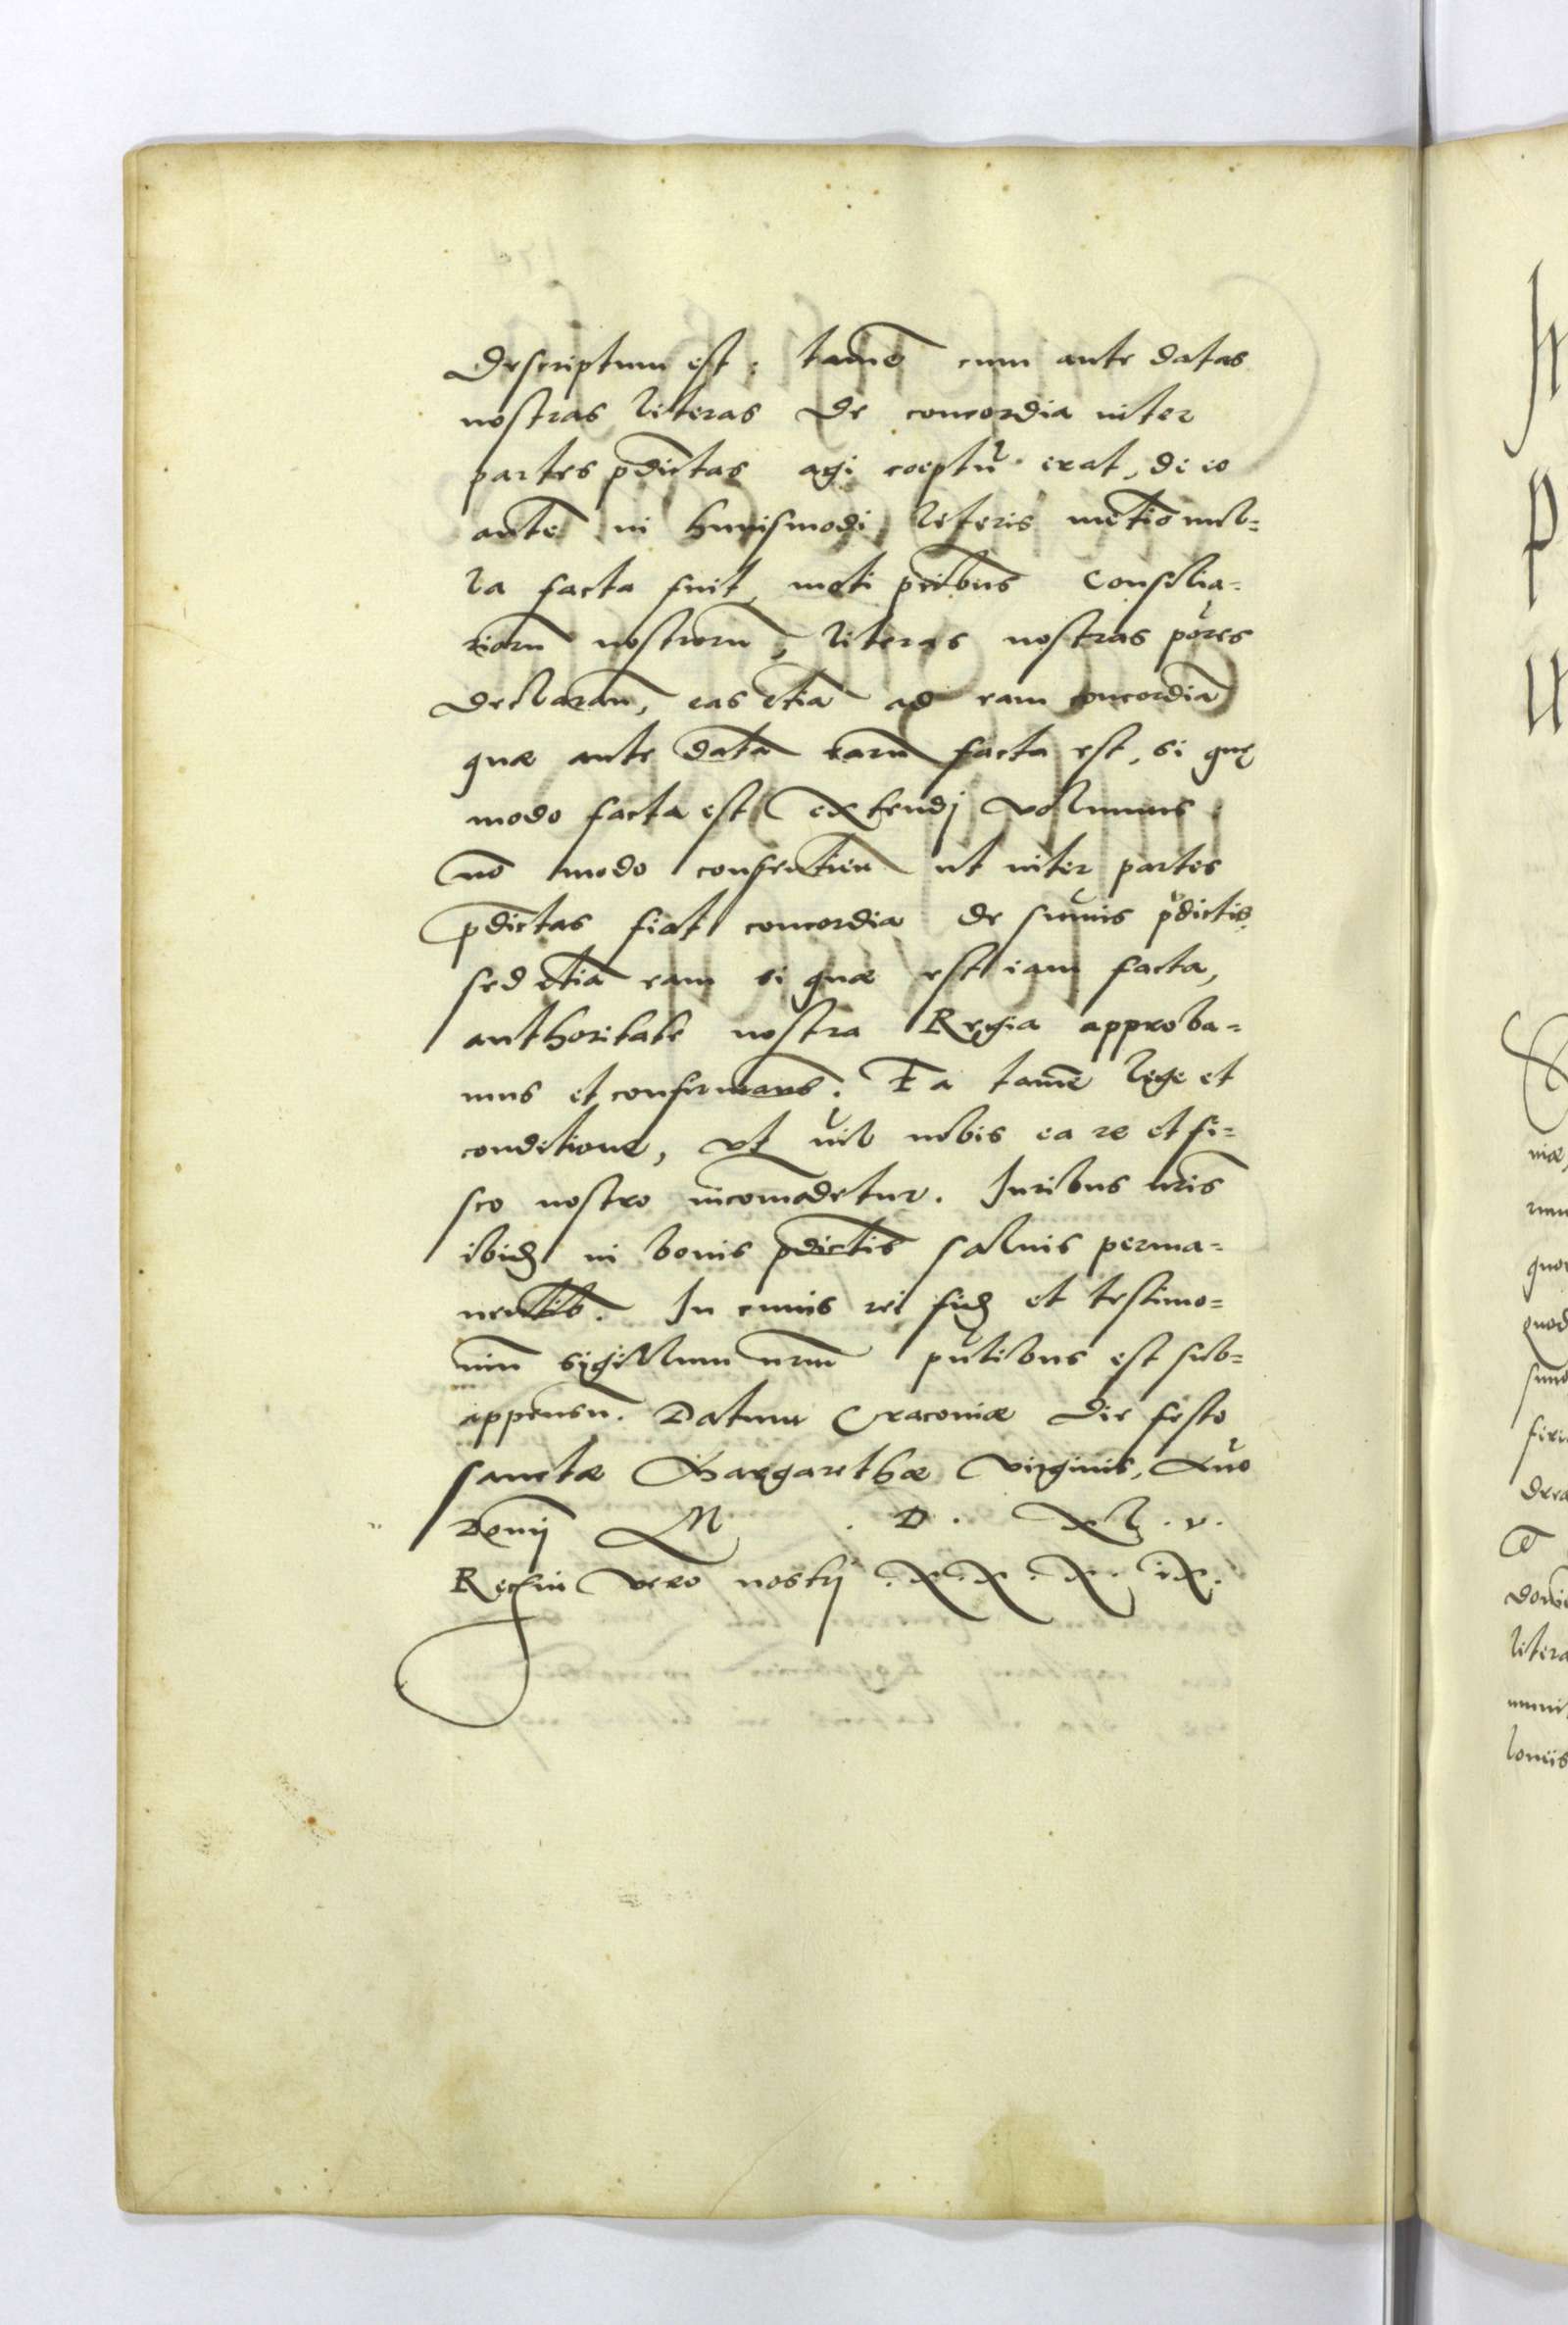 descriptum est: tamē cum ante datas
nostras literas de concordia inter
partes pdictas agi coeptū erat, de eo
autē in huiusmodi literis metio nul=
la facta fuit, moti pcibus Consilia=
riorū nostrorū, literas nostras pōres
declarān, eas etiā ad eam concordiā
quæ ante datā earū facta est, si quę
modo facta est extendj volumus
nō modo consentien ut inter partes
pdictas fiat concordia de sūmis pdictis
sed etiā eam si quæ est iam facta,
authoritate nostra Regia approba=
mus et confirmams. Ea tamē lege et
conditione, vt nil nobis ea re et fi=
sco nostro incomōdetur. Iuribus nris
ibid in bonis pdictis saluis perma=
nentib. In cuius rei fid et testimo=
niū sigillum nrm pntibus est sub=
appensū. Datum Cracouiæ die festo
sanctæ Margarethæ virginis, Ano
Domj M . D . XL . v .
Regni vero nostrj . X . X . X . iX .
niæ
quod
sund
dona
litera
louiis